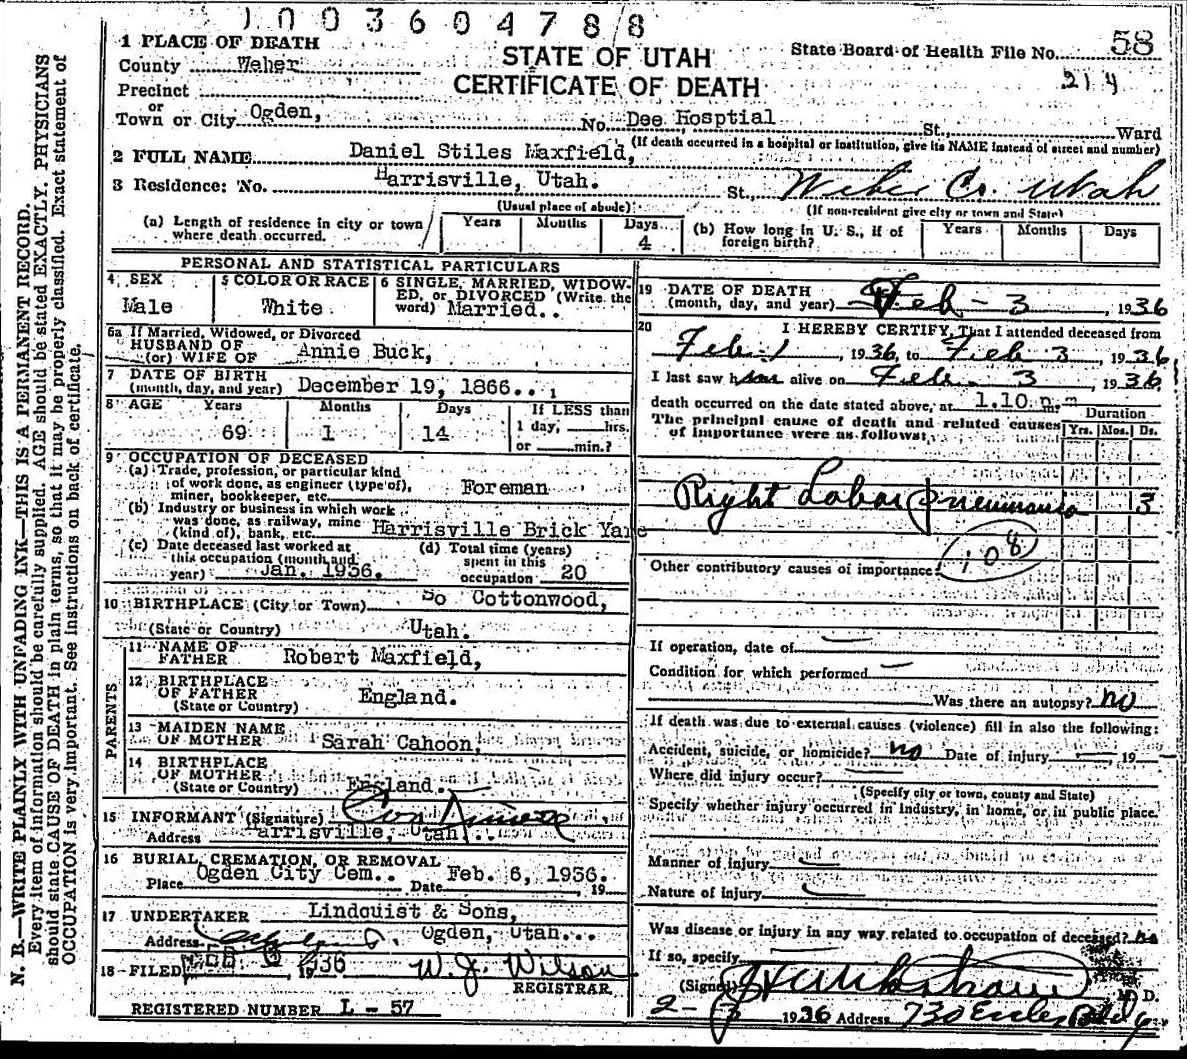 1003604788
1 PLACE OF DEATH
STATE OF UTAH
State Board of Health File No. 58
County Weber
CERTIFICATE OF DEATH
214
Precinct
or
Town or City Ogden, No. Dee Hosptial St., Ward
(If death occurred in a hospital or institution, give its NAME instead of street and number)
2 FULL NAME Daniel Stiles Maxfield,
3 Residence: No. Harrisville, Utah. St., Weber Co. Utah
(Usual place of abode) (If non-resident give city or town and State)
(a) Length of residence in city or town where death occurred. Years Months Days 4
(b) How long in U. S., if of foreign birth? Years Months Days
PERSONAL AND STATISTICAL PARTICULARS
4 SEX Male
5 COLOR OR RACE White
6 SINGLE, MARRIED, WIDOWED, or DIVORCED (Write the word) Married..
6a If Married, Widowed, or Divorced
HUSBAND OF
(or) WIFE OF Annie Buck,
7 DATE OF BIRTH
(month, day, and year) December 19, 1866..
8 AGE Years 69 Months 1 Days 14 If LESS than 1 day, hrs. or min.?
9 OCCUPATION OF DECEASED
(a) Trade, profession, or particular kind
of work done, as engineer (type of),
miner, bookkeeper, etc. Foreman
(b) Industry or business in which work
was done, as railway, mine
(kind of), bank, etc. Harrisville Brick Yard
(c) Date deceased last worked at
this occupation (month and
year) Jan. 1936.
(d) Total time (years)
spent in this
occupation 20
10 BIRTHPLACE (City or Town) So Cottonwood,
(State or Country) Utah.
PARENTS
11 NAME OF
FATHER Robert Maxfield,
12 BIRTHPLACE
OF FATHER
(State or Country) England.
13 MAIDEN NAME
OF MOTHER Sarah Cahoon,
14 BIRTHPLACE
OF MOTHER
(State or Country) England.
15 INFORMANT (Signature)
Address Harrisville, Utah..
16 BURIAL, CREMATION, OR REMOVAL
Place Ogden City Cem.. Date Feb. 6, 1936. 19
17 UNDERTAKER Lindquist & Sons,
Address Ogden, Utah...
18 FILED FEB 1936 W. J. Wilson
REGISTRAR
REGISTERED NUMBER L - 57
19 DATE OF DEATH
(month, day, and year) Feb - 3, 1936
20 I HEREBY CERTIFY, That I attended deceased from
Feb. 1, 1936, to Feb 3, 1936.
I last saw him alive on Feb. 3, 1936
death occurred on the date stated above, at 1.10 p.m
Duration
The principal cause of death and related causes
of importance were as follows: Yrs. Mos. Ds.
Right Lobar pneumonia 3
108
Other contributory causes of importance:
If operation, date of
Condition for which performed
Was there an autopsy? no
If death was due to external causes (violence) fill in also the following:
Accident, suicide, or homicide? no Date of injury , 19
Where did injury occur?
(Specify city or town, county and State)
Specify whether injury occurred in industry, in home, or in public place.
Manner of injury
Nature of injury
Was disease or injury in any way related to occupation of deceased? no
If so, specify
(Signed) M. D.
2- 1936 Address 730 Eccles Bldg
N. B.—WRITE PLAINLY WITH UNFADING INK—THIS IS A PERMANENT RECORD.
Every item of information should be carefully supplied. AGE should be stated EXACTLY. PHYSICIANS
should state CAUSE OF DEATH in plain terms, so that it may be properly classified. Exact statement of
OCCUPATION is very important. See instructions on back of certificate.